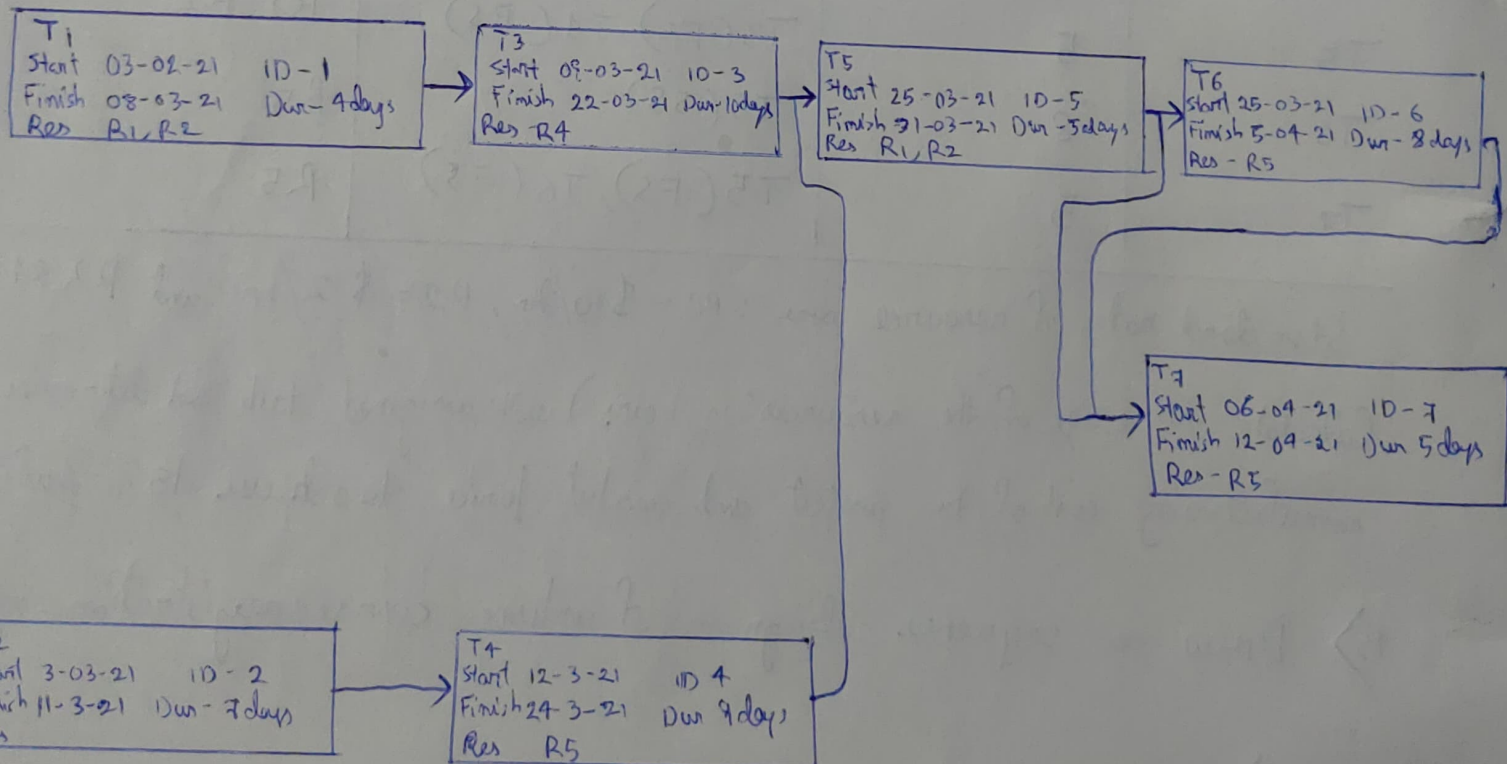 T1
Start 03-02-21 ID-1
Finish 08-03-21 Dur-4days
Res R1, R2
T3
Start 09-03-21 ID-3
Finish 22-03-21 Dur-10days
Res-R4
T5
Start 25-03-21 ID-5
Finish 31-03-21 Dur-5days
Res R1, R2
T6
Start 25-03-21 ID-6
Finish 5-04-21 Dur-8days
Res-R5
T7
Start 06-04-21 ID-7
Finish 12-04-21 Dur 5days
Res-R5
3-03-21 ID-2
11-3-21 Dur-7days
T4
Start 12-3-21 ID 4
Finish 24-3-21 Dur days
Res R5